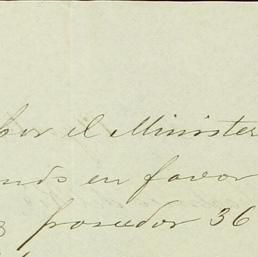 por el Minister
ends en favor
poseedor 36